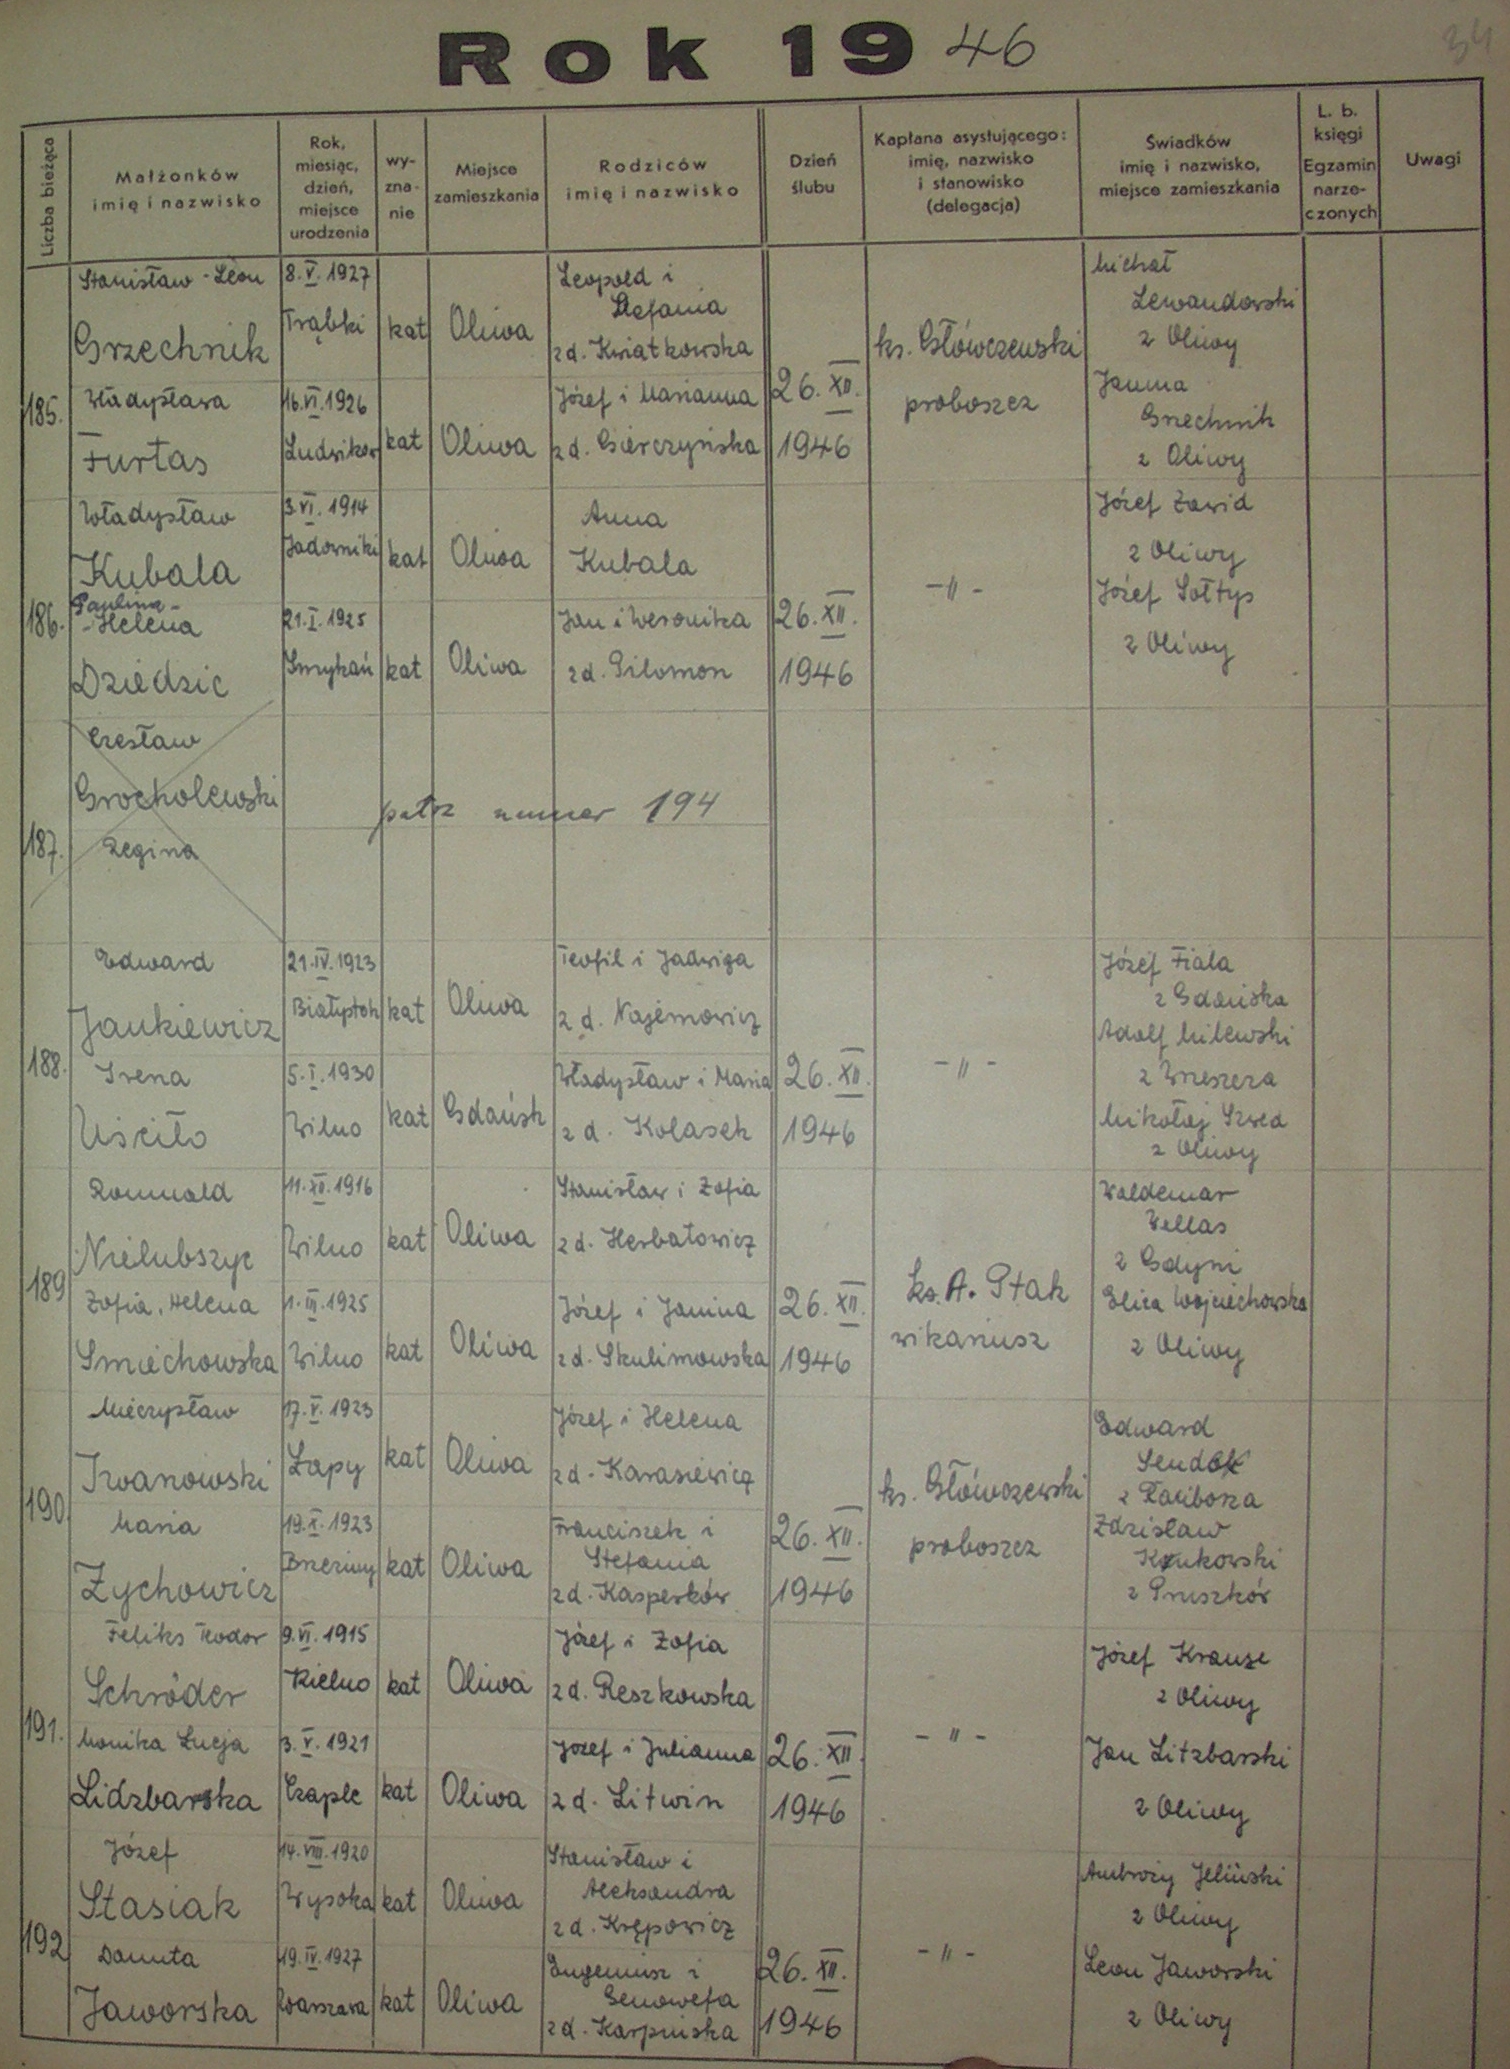 Rok 1946
34
Liczba bieżąca
Małżonków
imię i nazwisko
Rok,
miesiąc,
dzień,
miejsce
urodzenia
wy-
zna-
nie
Miejsce
zamieszkania
Rodziców
imię i nazwisko
Dzień
ślubu
Kapłana asystującego:
imię, nazwisko
i stanowisko
(delegacja)
Świadków
imię i nazwisko,
miejsce zamieszkania
L. b.
księgi
Egzamin
narze-
czonych
Uwagi
185.
Stanisław - Leon
Grzechnik
8.V.1927
Trąbki
kat
Oliwa
Leopold i
Stefania
z d. Kwiatkowska
Władysława
Furtas
16.VI.1926
Ludwików
kat
Oliwa
Józef i Marianna
z d. Gierczyńska
26.XII.
1946
ks. Główczewski
proboszcz
Michał
Lewandowski
z Oliwy
Janina
Grzechnik
z Oliwy
186.
Władysław
Kubala
3.VI.1914
Jadowniki
kat
Oliwa
Anna
Kubala
Paulina -
- Helena
Dziedzic
21.I.1925
Smykań
kat
Oliwa
Jan i Weronika
z d. Filomon
26.XII.
1946
- " -
Józef Zawid
z Oliwy
Józef Sołtys
z Oliwy
187.
Czesław
Grocholewski
Regina
patrz numer 194
188.
Edward
Jankiewicz
21.IV.1923
Białystok
kat
Oliwa
Teofil i Jadwiga
z d. Najemowicz
Irena
Uściło
5.I.1930
Wilno
kat
Gdańsk
Władysław i Maria
z d. Kolasek
26.XII.
1946
- " -
Józef Fiala
z Gdańska
Adolf Milewski
z Wrzeszcza
Mikołaj Szwed
z Oliwy
189
Romuald
Nielubszyc
11.XII.1916
Wilno
kat
Oliwa
Stanisław i Zofia
z d. Herbatowicz
Zofia, Helena
Smiechowska
1.III.1925
Wilno
kat
Oliwa
Józef i Janina
z d. Skulimowska
26.XII.
1946
ks. A. Ptak
wikariusz
Waldemar
Wellas
z Gdyni
Eliza Wojciechowska
z Oliwy
190.
Mieczysław
Iwanowski
17.V.1923
Łapy
kat
Oliwa
Józef i Helena
z d. Karasiewicz
Maria
Zychowicz
19.X.1923
Brzeziny
kat
Oliwa
Franciszek i
Stefania
z d. Kasperków
26.XII.
1946
ks. Główczewski
proboszcz
Edward
z Raciborza
Zdzisław
z Pruszków
191.
Feliks Teodor
Schröder
9.VI.1915
Kielno
kat
Oliwa
Józef i Zofia
z d. Reszkowska
Monika Łucja
Lidzbarska
3.V.1921
Czaple
kat
Oliwa
Józef i Julianna
z d. Litwin
26.XII
1946
- " -
Józef Krauze
z Oliwy
Jan Litzbarski
z Oliwy
192
Józef
Stasiak
14.VIII.1920
Wysoka
kat
Oliwa
Stanisław i
Aleksandra
z d. Krępowicz
Danuta
Jaworska
19.IV.1927
Warszawa
kat
Oliwa
Eugeniusz i
Genowefa
z d. Karpińska
26.XII.
1946
- " -
Ambroży Jeliński
z Oliwy
Leon Jaworski
z Oliwy